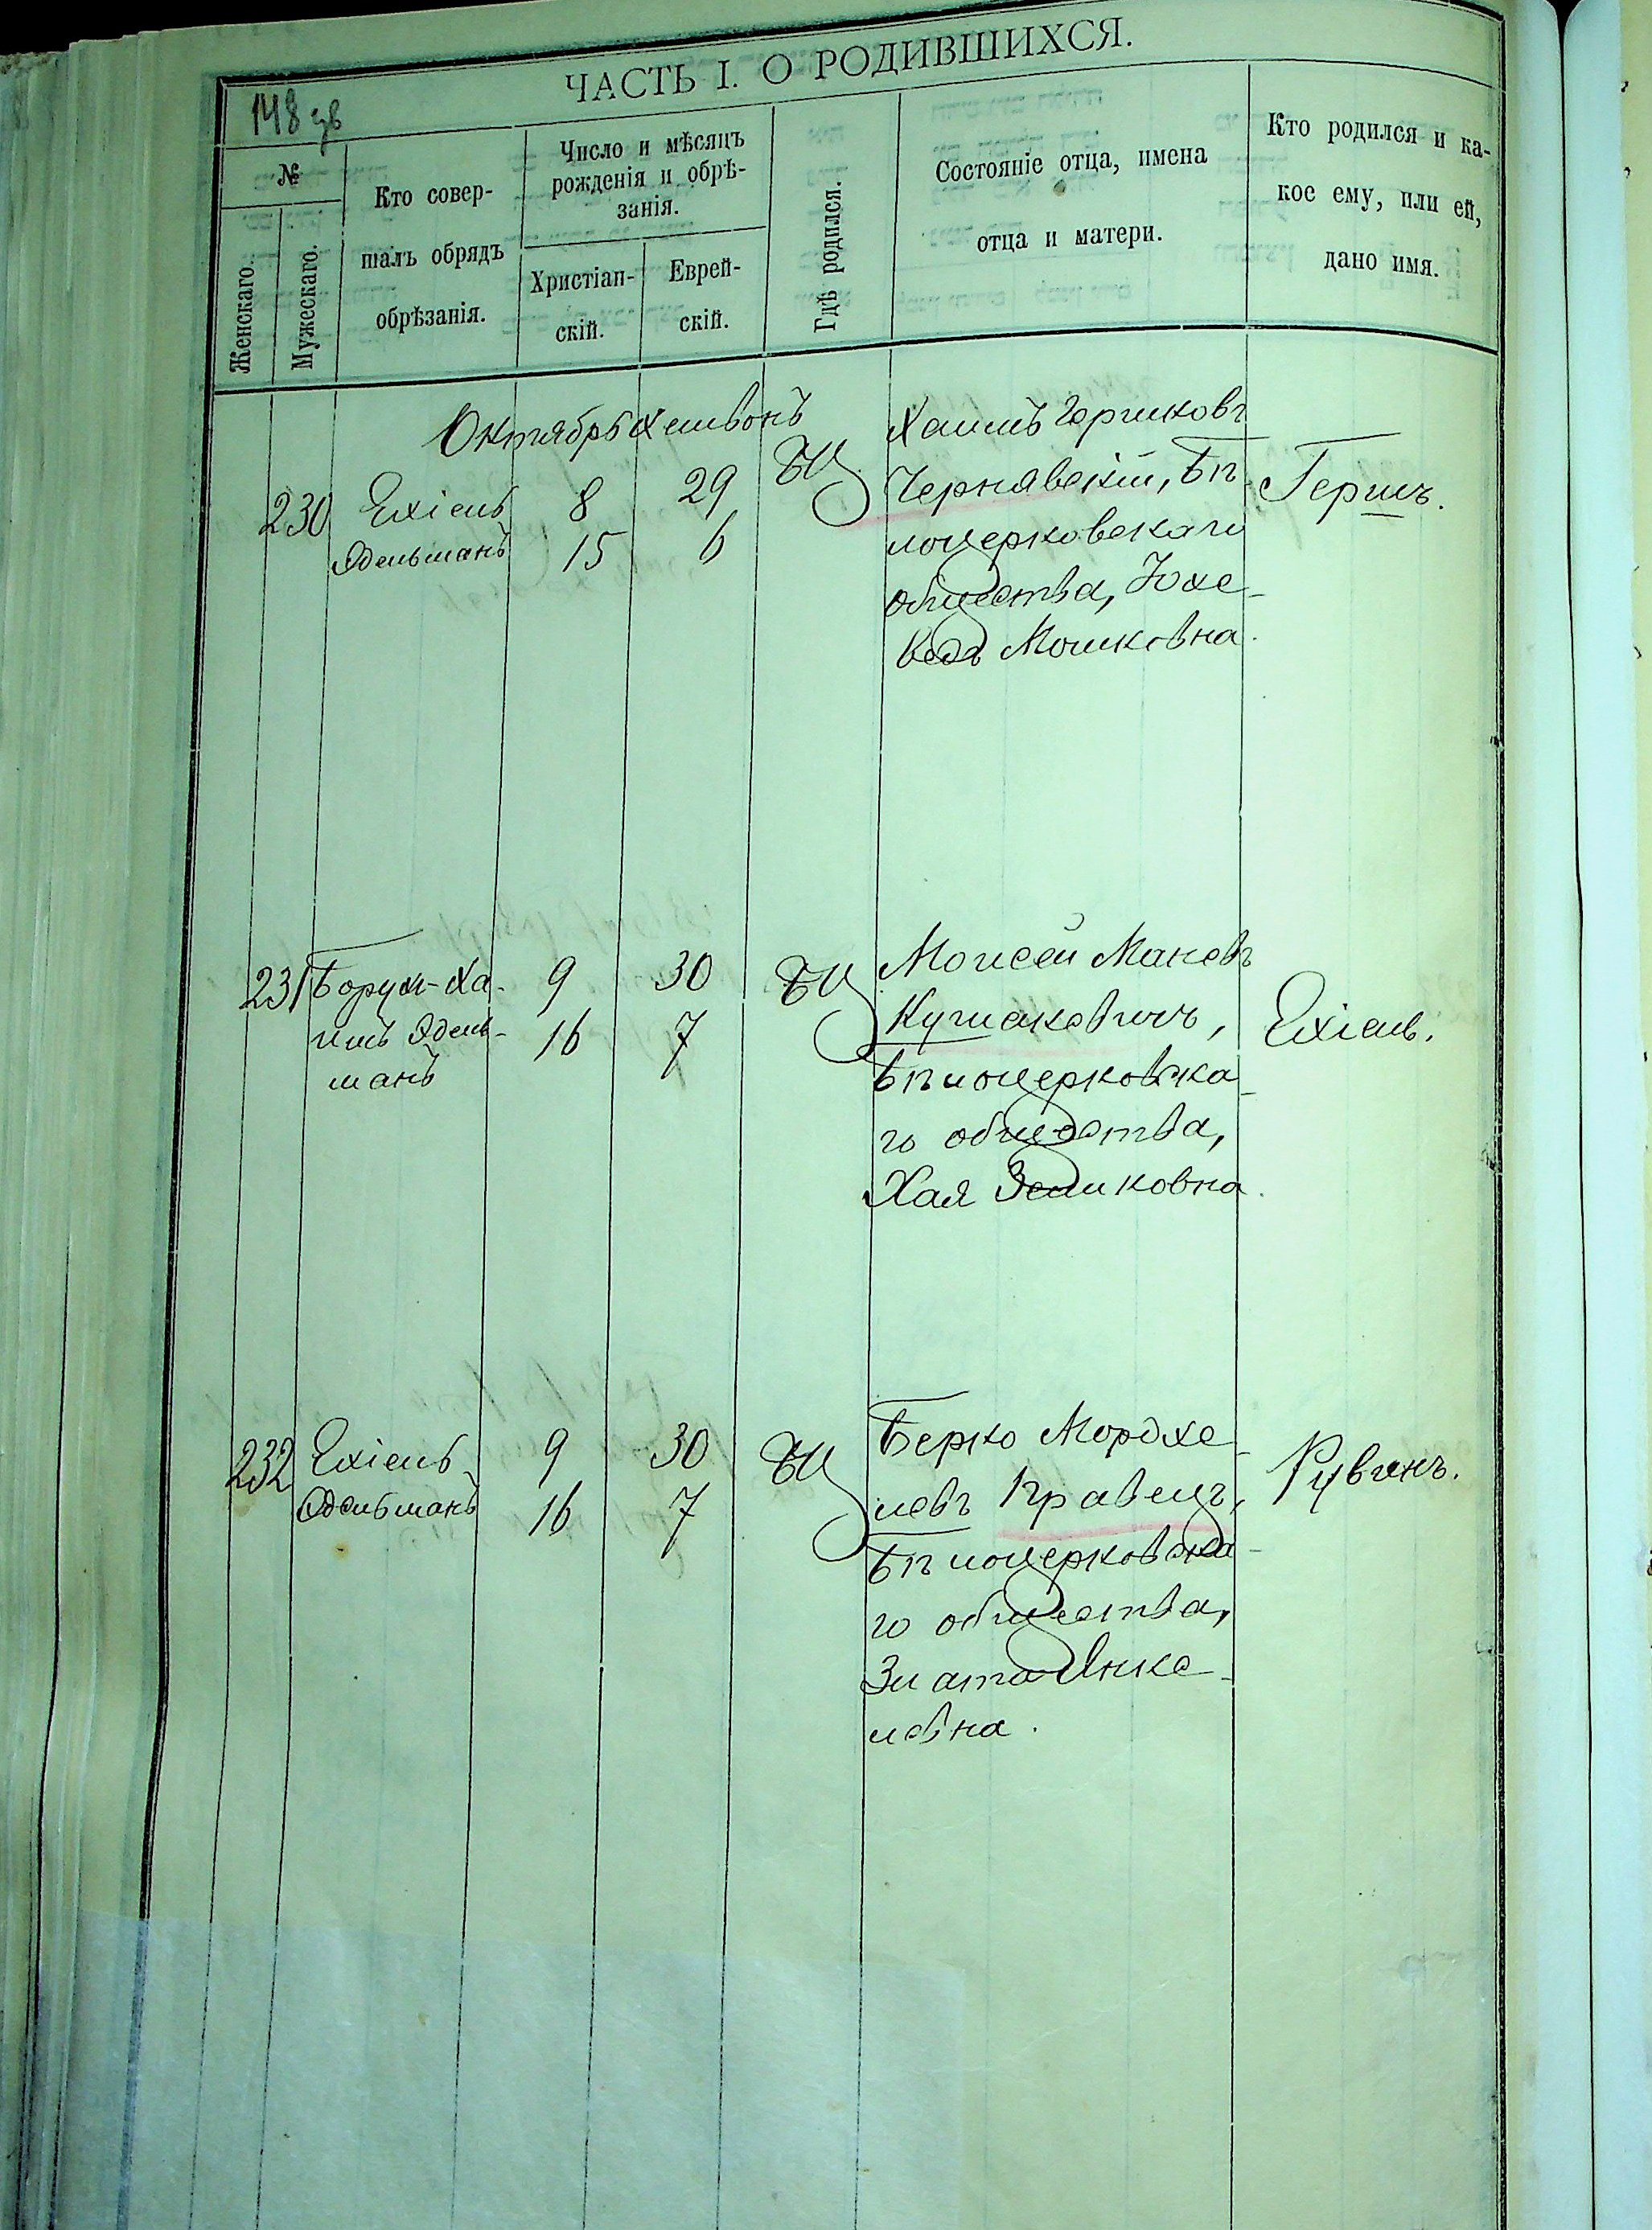 ЧАСТЬ I. О РОДИВШИХСЯ.
148 зв
№
Женскаго.
Мужескаго.
Кто совер-
шалъ обрядъ
обрѣзанія.
Число и мѣсяцъ
рожденія и обрѣ-
занія.
Христіан-
скій.
Еврей-
скій.
Гдѣ родился.
Состояніе отца, имена
отца и матери.
Кто родился и ка-
кое ему, или ей,
дано имя.
Октябрь Хешвонъ
230
Ехіель
Эдельманъ
8
15
29
6
БЦ
Хаимъ Гершковъ
Чернявскій, Бѣ-
лоцерковскаго
общества, Юхе-
ведъ Мошковна.
Гершъ.
231
Борух-Ха-
имъ Эдель-
манъ
9
16
30
7
БЦ
Моисей Маневъ
Кушаковичъ,
Бѣлоцерковска-
го общества,
Хая Зеликовна.
Ехіель.
232
Ехіель
Эдельманъ
9
16
30
7
БЦ
Берко Мордхе-
левъ Кравецъ,
Бѣлоцерковска-
го общества,
Злата Янке-
левна.
Рувинъ.